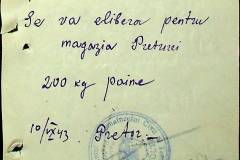 Se va elibera pentru
magazia Preturei
200 kg paine
10/IX 43. Pretor.